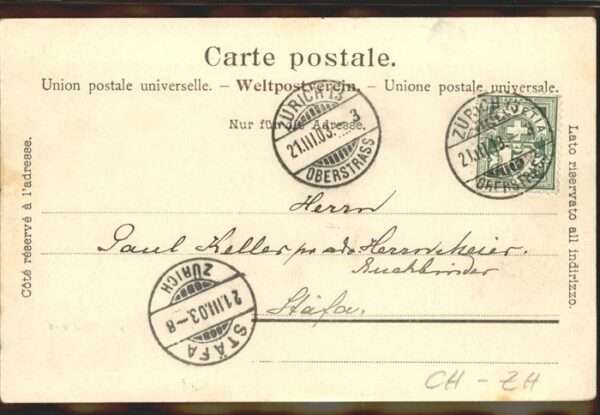 Carte postale.
Union postale universelle. – Weltpostverein. – Unione postale universale.
Nur für die Adresse.
Côté réservé à l'adresse.
Lato riservato all indirizzo.
ZÜRICH 13
21.III.03. 3
OBERSTRASS
ZÜRICH 13
21.III.03.
OBERSTRASS
HELVETIA
Herrn
Paul Keller pr. adr. Herrn Meier.
Buchbinder
Stäfa.
STÄFA
21.III.03.–8
ZÜRICH
CH – ZH